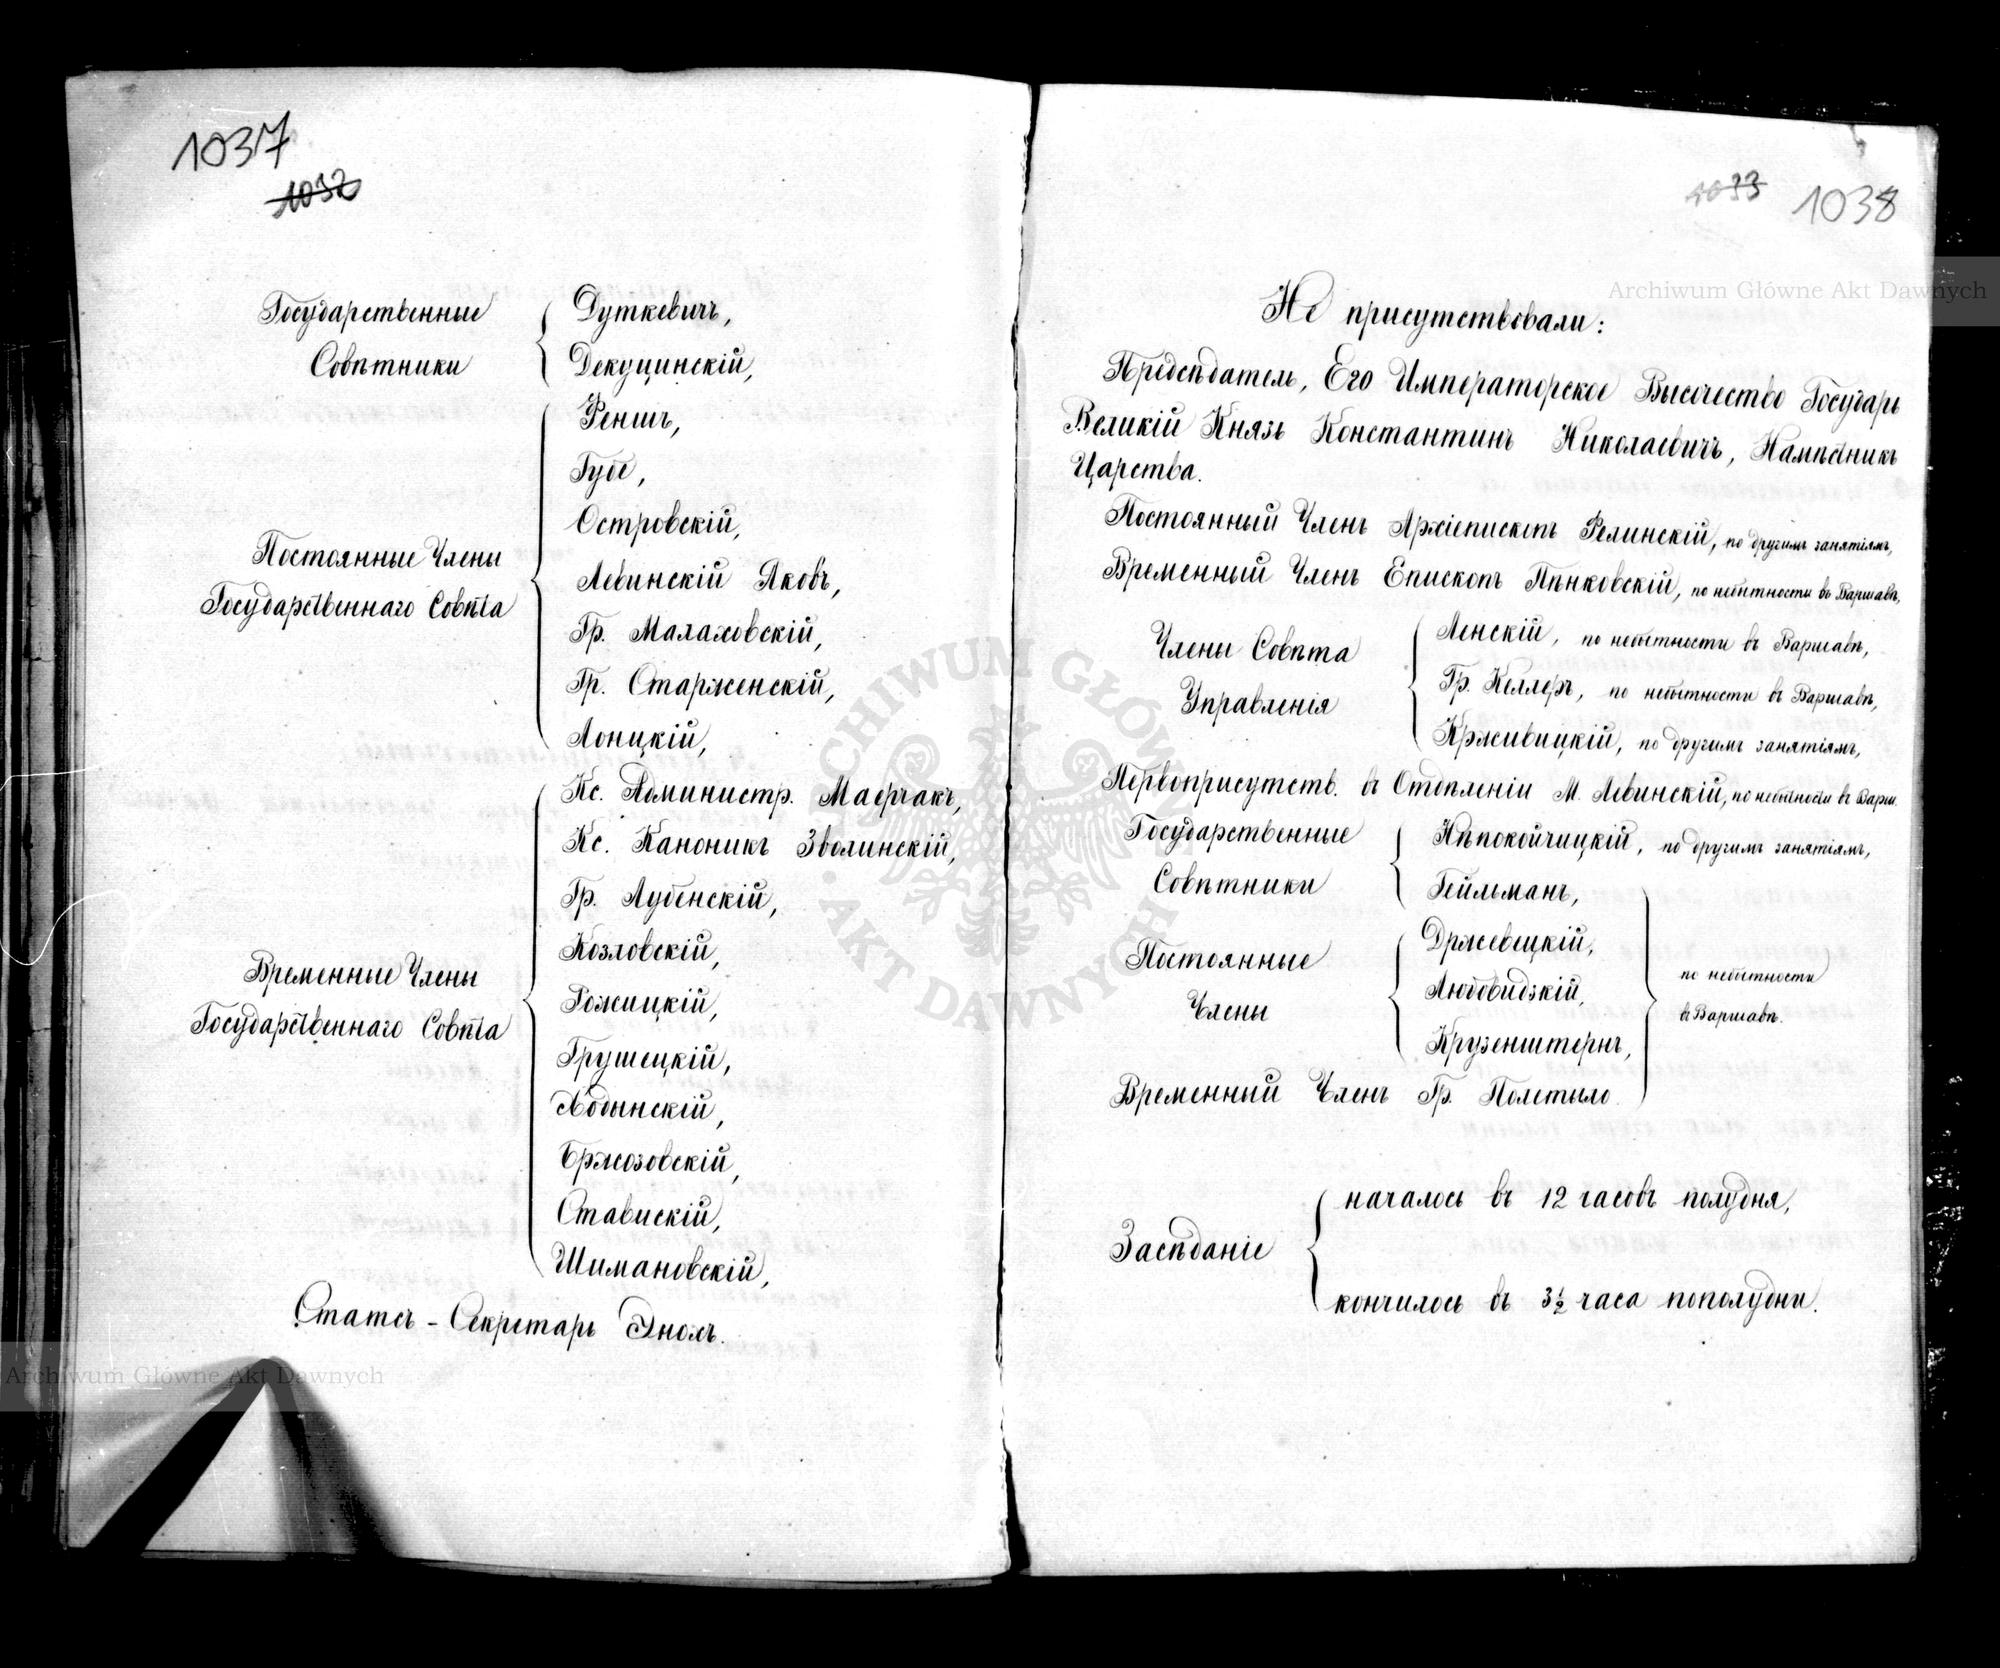 1037
1032
Государственные
Совѣтники
Дуткевичъ,
Декуцинскій,
Постоянные Члены
Государственнаго Совѣта
Феншъ,
Губе,
Островскій,
Левинскій Яковъ,
Гр. Малаховскій,
Гр. Старженскій,
Лонцкій,
Временные Члены
Государственнаго Совѣта
Кс. Администр. Маерчакъ,
Кс. Каноникъ Зволинскій,
Гр. Лубенскій,
Козловскій,
Рожицкій,
Грушецкій,
Ходынскій,
Бржозовскій,
Ставискій,
Шимановскій,
Статсъ-Секретарь Энохъ.
1033 1038
Не присутствовали:
Предсѣдатель, Его Императорское Высочество Государь
Великій Князь Константинъ Николаевичъ, Намѣстникъ
Царства.
Постоянный Членъ Архіепископъ Фелинскій, по другимъ занятіямъ,
Временный Членъ Епископъ Пѣнковскій, по небытности въ Варшавѣ,
Члены Совѣта
Управленія
Ленскій, по небытности въ Варшавѣ,
Гр. Келлеръ, по небытности въ Варшавѣ,
Крживицкій, по другимъ занятіямъ,
Первоприсутств. въ Отдѣленіи М. Левинскій, по небытности въ Варш.
Государственные
Совѣтники
Нѣпокойчицкій, по другимъ занятіямъ,
Гейльманъ,
Постоянные
Члены
Држевецкій,
Любовидзкій,
Крузенштернъ,
Временный Членъ Гр. Полетыло.
по небытности
въ Варшавѣ.
Засѣданіе
началось въ 12 часовъ полудня,
кончилось въ 3½ часа пополудни.
Archiwum Główne Akt Dawnych
Archiwum Główne Akt Dawnych
ARCHIWUM GŁÓWNE
AKT DAWNYCH